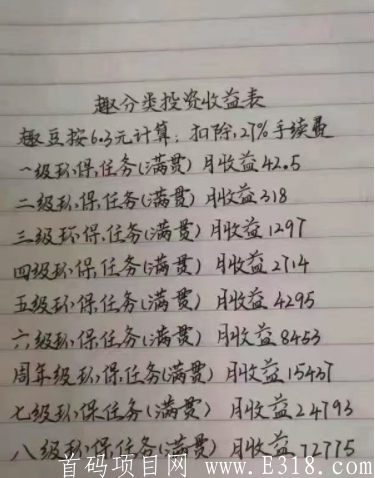 趣分类投资收益表
趣豆按6.3元计算;扣除,27%手续费
一级环保任务(满贯)月收益42.5
二级环保任务(满贯)月收益318
三级环保任务(满贯)月收益1297
四级环保任务(满贯)月收益2714
五级环保任务(满贯)月收益4295
六级环保任务(满贯)月收益8453
周年级环保任务(满贯)月收益15437
七级环保任务(满贯)月收益24793
八级环保任务(满贯)月收益72775
首码项目网 www.E318.com